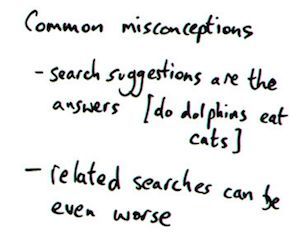 Common misconceptions
- search suggestions are the
answers [do dolphins eat
cats]
- related searches can be
even worse